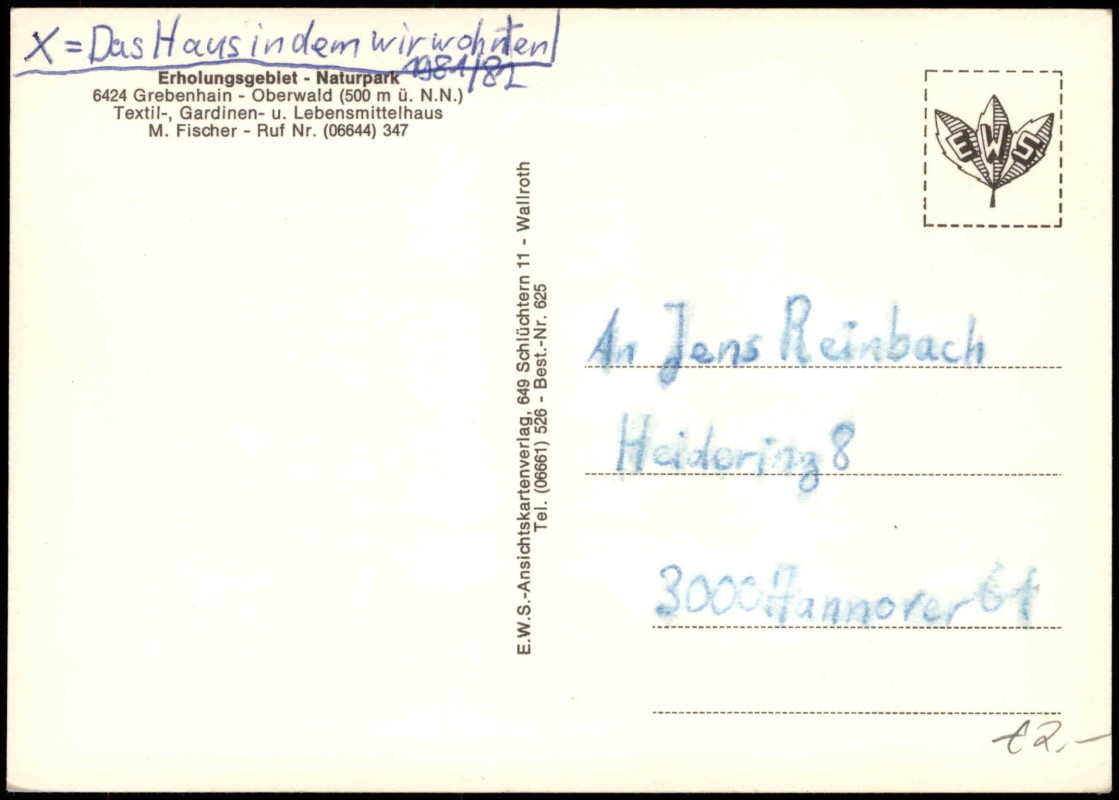 X = Das Haus in dem wir wohnten
1981/82
Erholungsgebiet - Naturpark
6424 Grebenhain - Oberwald (500 m ü. N.N.)
Textil-, Gardinen- u. Lebensmittelhaus
M. Fischer - Ruf Nr. (06644) 347
E.W.S.-Ansichtskartenverlag, 649 Schlüchtern 11 - Wallroth
Tel. (06661) 526 - Best.-Nr. 625
EWS
An Jens Reinbach
Heidering 8
3000 Hannover 61
€2,-